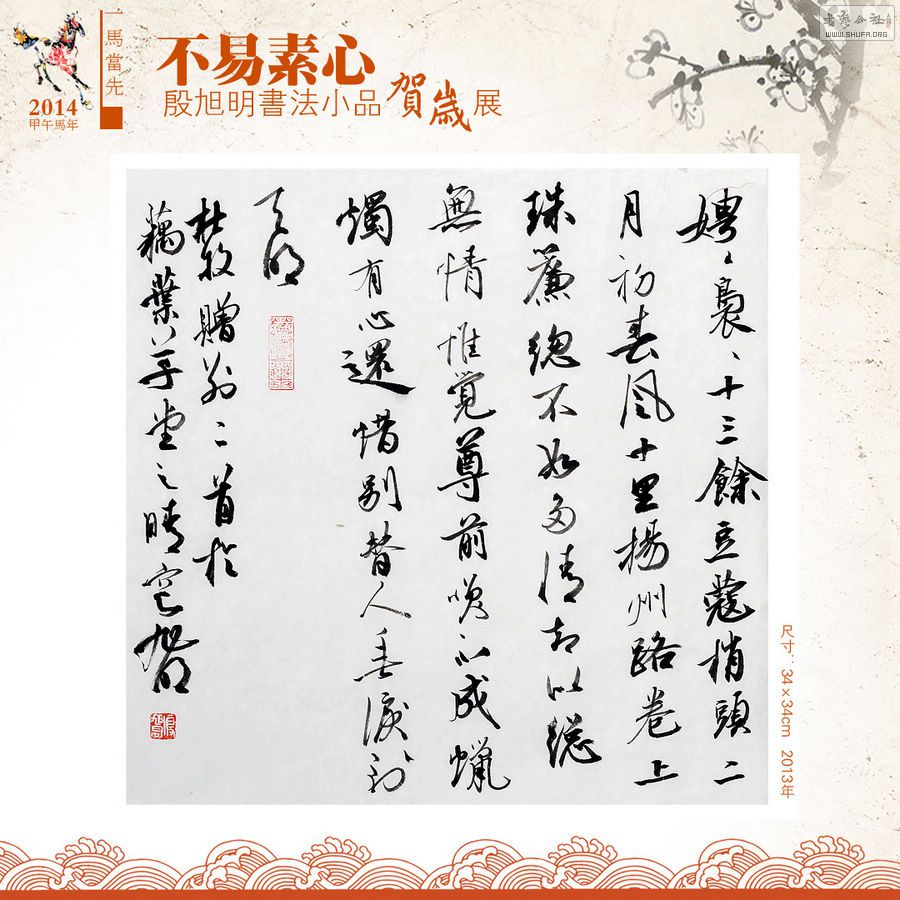 一馬當先
2014
甲午馬年
不易素心
殷旭明書法小品賀歲展
書藝公社
WWW.SHUFA.ORG
娉〻裊〻十三餘豆蔻梢頭二
月初春風十里揚州路卷上
珠簾總不如多情却似總
無情惟覺尊前咲不成蠟
燭有心還惜別替人垂淚到
天明
杜牧贈別二首於
藕葉草堂之晴窓旭明
尺寸：34×34cm 2013年